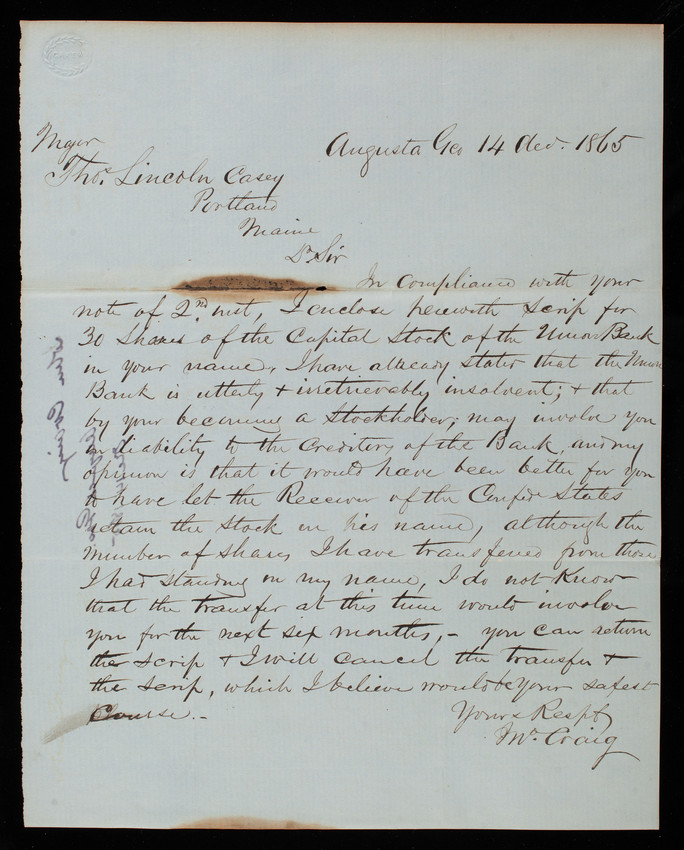 Augusta Geo 14 Dec. 1865
Major
Thos. Lincoln Casey
Portland
Maine
Dr Sir
In Compliance with your
note of 2nd inst, I enclose herewith Scrip for
30 Shares of the Capital Stock of the Union Bank
in your name, I have already stated that the Union
Bank is utterly + irretrievably insolvent; + that
by your becoming a Stockholder; may involve you
in liability to the Creditors of the Bank, and my
opinion is that it would have been better for you
to have let the Receiver of the Confede States
retain the Stock in his name, although the
number of Shares I have transfered from those
I had Standing in my name, I do not Know
that the transfer at this time would involve
you for the next six months, - you can return
the scrip + I will cancel the transfer +
the scrip, which I believe would be your safest
Course. -
Yours Respty
Wm. Craig